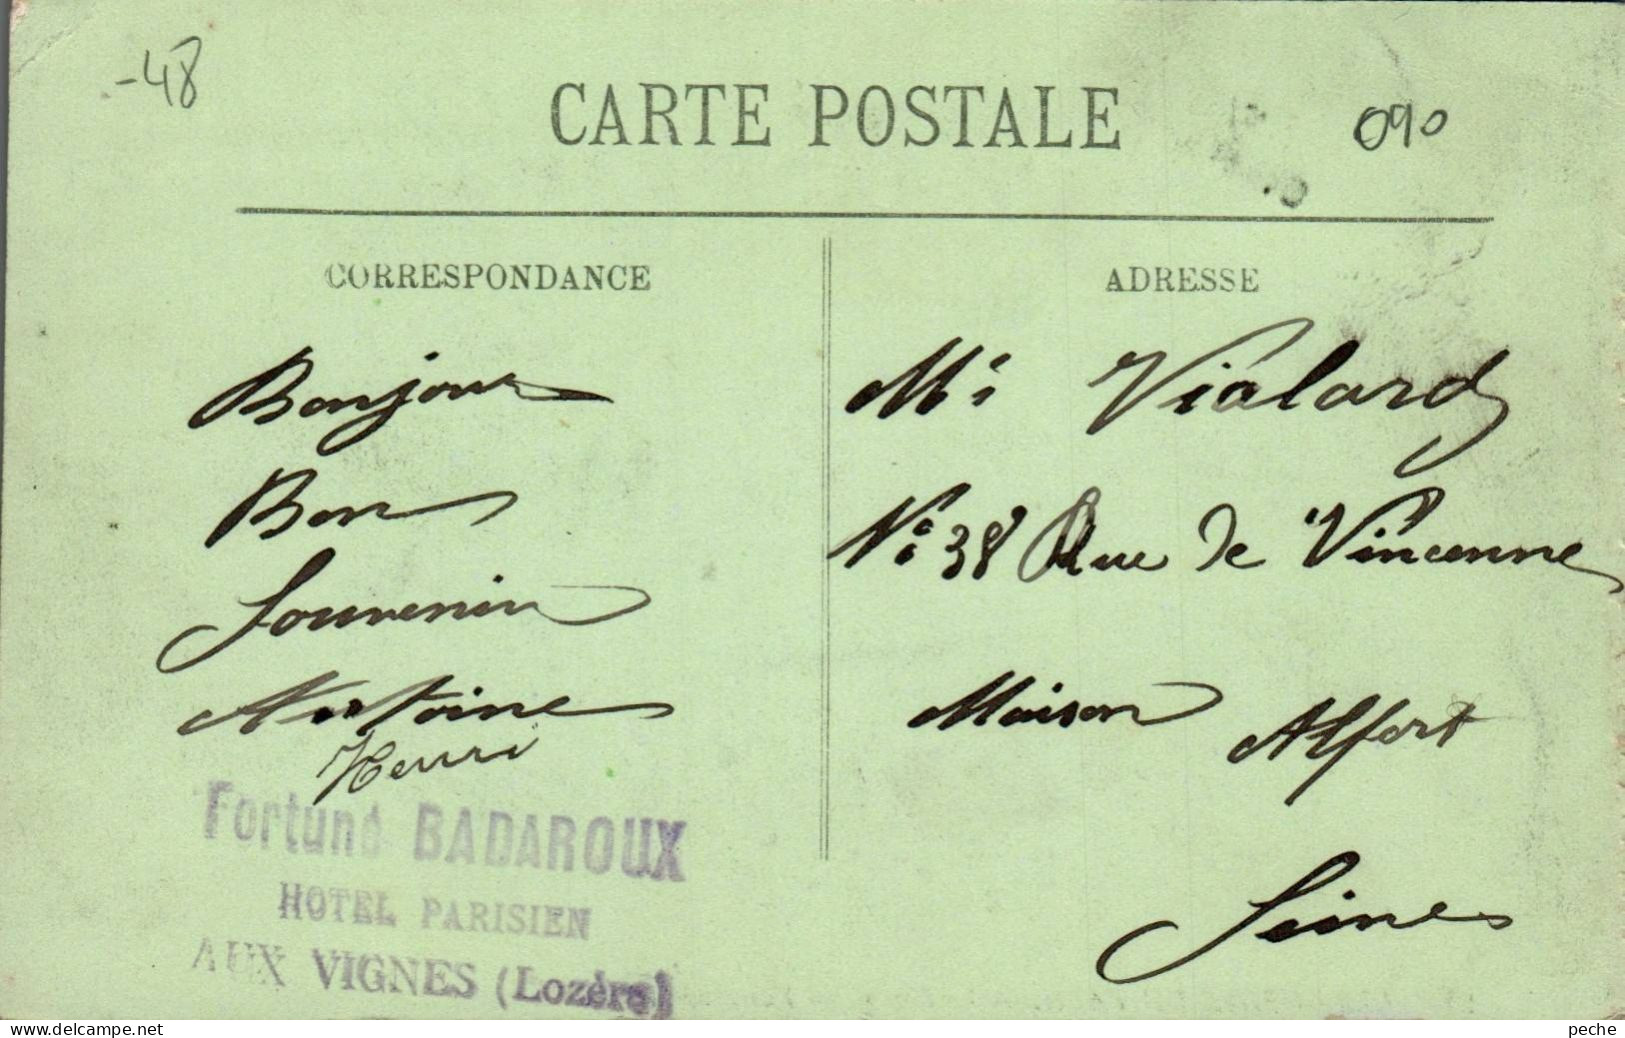 -48
CARTE POSTALE
090
CORRESPONDANCE
Bonjour
Bon
Souvenir
Antoine
Henri
Fortuné BADAROUX
HOTEL PARISIEN
AUX VIGNES (Lozère)
ADRESSE
Mr Vialard
No 38 Rue de Vincenne
Maison Alfort
Seine
delcampe.net
peche